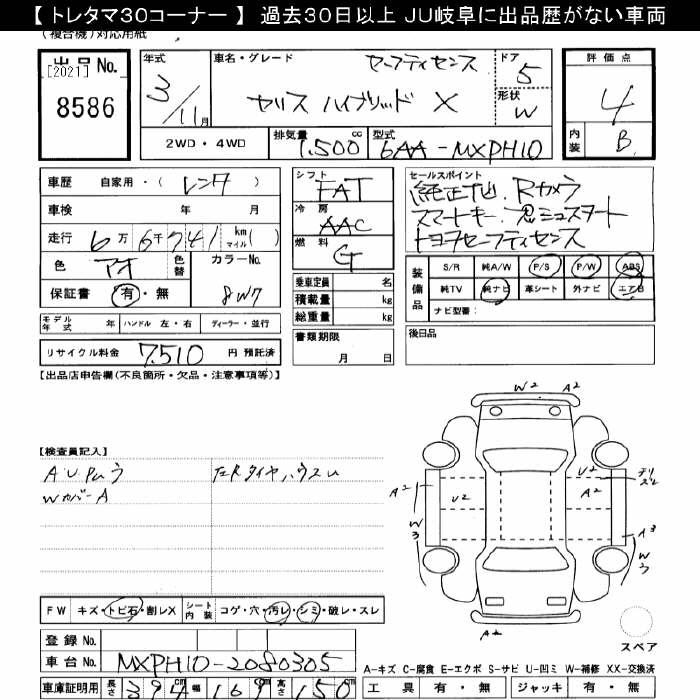 【 トレタマ30コーナー 】 過去30日以上 JU岐阜に出品歴がない車両
(複合機)対応用紙
出品No.
[2021]
8586
年式
3/11月
車名・グレード
セーフティセンス
ヤリス ハイブリッド X
ドア
5
形状
W
評価点
4
内装
B
2WD・4WD
排気量
1,500 cc
型式
6AA-MXPH10
車歴 自家用・(レンタ)
車検 年 月
走行 6万6千741 km マイル( )
色 アオ 色替 カラーNo.
保証書 有・無 8W7
シフト
FAT
冷房
AAC
燃料
G
乗車定員 名
積載量 kg
総重量 kg
セールスポイント
純正ナビ Rカメラ
スマートキー プッシュスタート
トヨタセーフティセンス
装備品
S/R 純A/W P/S P/W ABS
純TV 純ナビ 革シート 外ナビ エアB
ナビ型番:
モデル年式 年 ハンドル 左・右 ディーラー・並行
リサイクル料金 7,510 円 預託済
書類期限
月 日
後日品
【出品店申告欄(不良箇所・欠品・注意事項等)】
W2 A2
【検査員記入】
A・U・Pムラ
WカバーA
左Rタイヤハウス
U2
A2
A2
U2
W3
A3
Wウ
A2
スペア
FW キズ・トビ石・割レX
シート内装 コゲ・穴・汚レ・シミ・破レ・スレ
登録No.
車台No. MXPH10-2080305
A-キズ C-腐食 E-エクボ S-サビ U-凹ミ W-補修 XX-交換済
車庫証明用 長さ 394 cm 幅 169 cm 高さ 150 cm
工具 有・無 ジャッキ 有・無